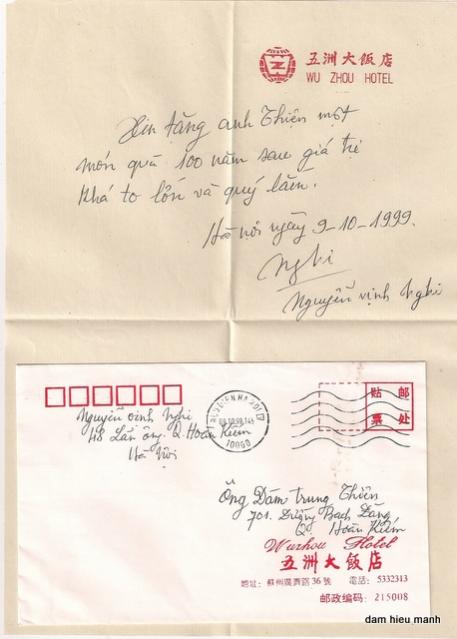 五洲大飯店
WU ZHOU HOTEL
Xin tặng anh Thiện một
món quà 100 năm sau giá trị
khá to lớn và quý lắm.
Hà nội ngày 9-10-1999.
Nghi
Nguyễn vịnh Nghi
贴 邮
票 处
Nguyễn vịnh Nghi
48 Lãn ông. Q. Hoàn Kiếm
Hà Nội
10060
Ông Đàm trung Thiện
701. Đường Bạch Đằng
Q. Hoàn Kiếm
Wuzhou Hotel
五洲大飯店
地址: 蘇州廣濟路36號 電話: 5332313
邮政编码: 215008
dam hieu manh